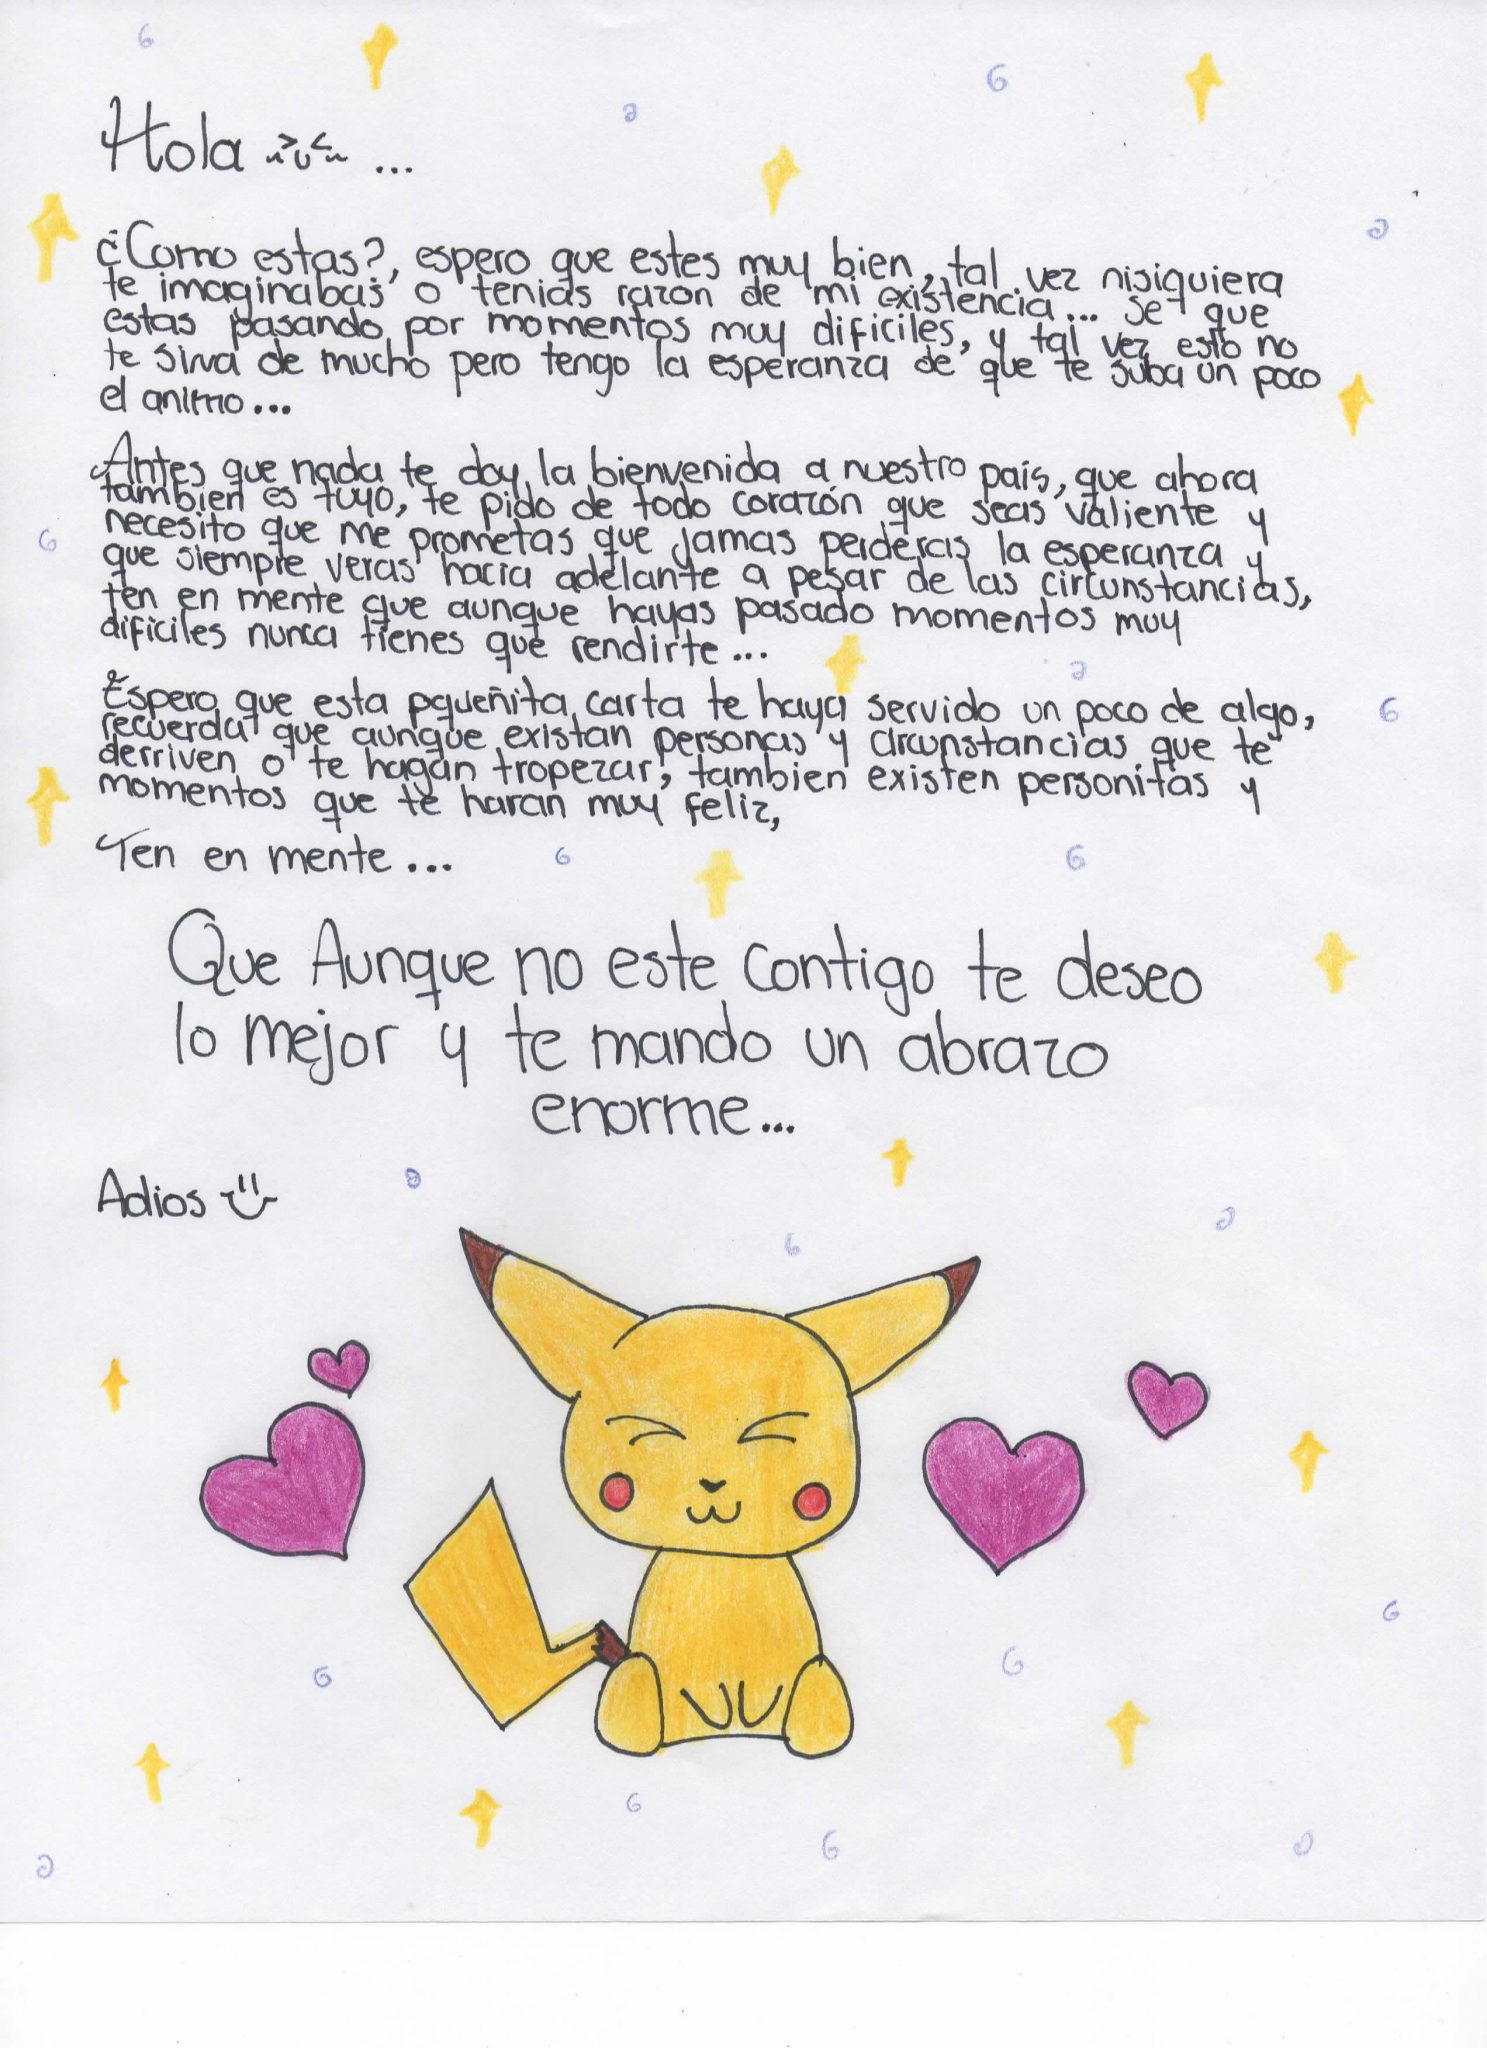 Hola ...
¿Como estas?, espero que estes muy bien, tal vez nisiquiera
te imaginabas o tenias razon de mi existencia... se que
estas pasando por momentos muy dificiles, y tal vez esto no
te sirva de mucho pero tengo la esperanza de que te suba un poco
el animo...
Antes que nada te doy la bienvenida a nuestro país, que ahora
tambien es tuyo, te pido de todo corazón que seas valiente y
necesito que me prometas que jamas perderas la esperanza y
que siempre veras hacia adelante a pesar de las circunstancias,
ten en mente que aunque hayas pasado momentos muy
dificiles nunca tienes que rendirte...
Espero que esta pqueñita carta te haya servido un poco de algo,
recuerda que aunque existan personas y circunstancias que te
derriven o te hagan tropezar, tambien existen personitas y
momentos que te haran muy feliz,
Ten en mente...
Que Aunque no este contigo te deseo
lo mejor y te mando un abrazo
enorme...
Adios